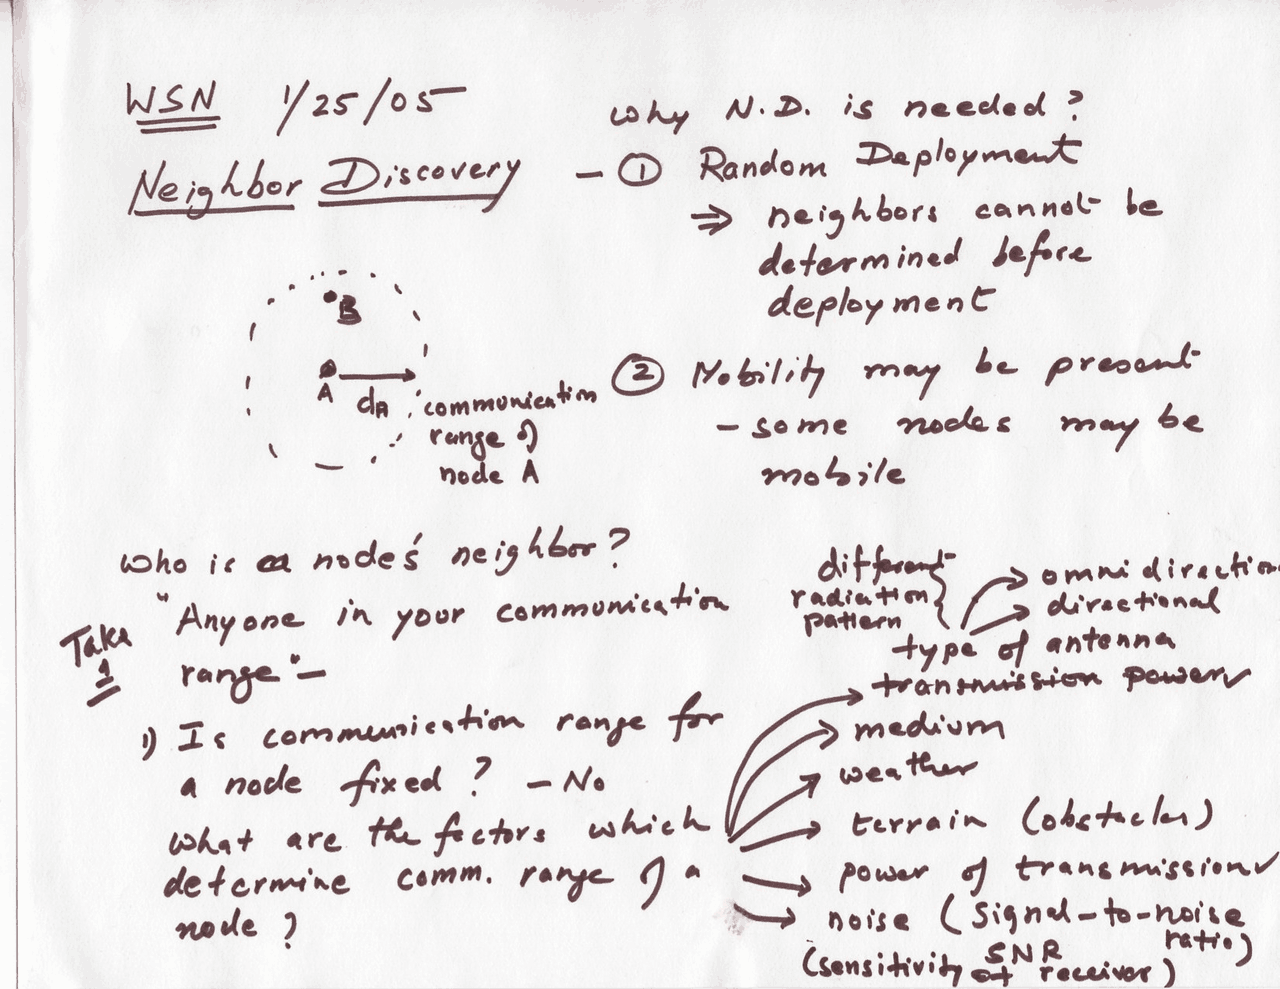 WSN 1/25/05
Neighbor Discovery
B
A
dA
communication
range of
node A
Why N.D. is needed?
- ① Random Deployment
⇒ neighbors cannot be
determined before
deployment
② Mobility may be present
- some nodes may be
mobile
Who is a node's neighbor?
Take
1
"Anyone in your communication
range" -
1) Is communication range for
a node fixed? - No
What are the factors which
determine comm. range of a
node?
different
radiation
pattern
omnidirection
directional
type of antenna
transmission power
medium
weather
terrain (obstacles)
power of transmission
noise (signal-to-noise
ratio)
SNR
(sensitivity of receiver)